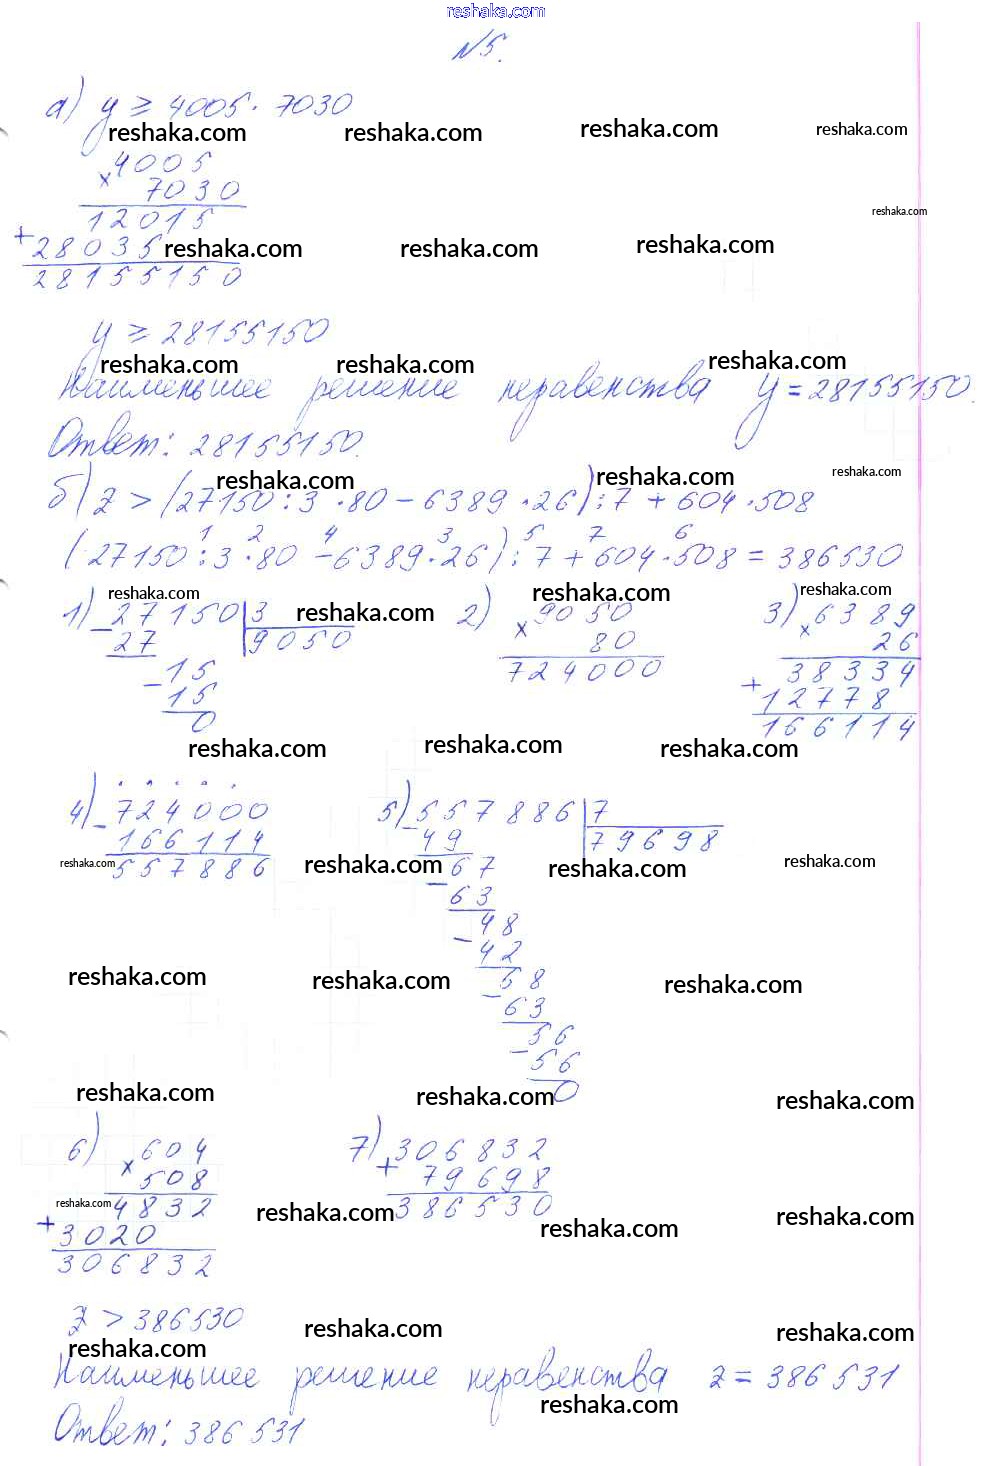 reshaka.com
№5.
а) y ≥ 4005 · 7030
reshaka.com reshaka.com reshaka.com reshaka.com
× 4005
7030
12015
reshaka.com
+ 28035
reshaka.com reshaka.com reshaka.com
28155150
y ≥ 28155150
reshaka.com reshaka.com reshaka.com
Наименьшее решение неравенства y = 28155150.
Ответ: 28155150.
reshaka.com reshaka.com reshaka.com
б) z > (27150 : 3 · 80 − 6389 · 26) : 7 + 604 · 508
1 2 4 3 5 7 6
(27150 : 3 · 80 − 6389 · 26) : 7 + 604 · 508 = 386530
reshaka.com reshaka.com reshaka.com reshaka.com
1) − 27150 | 3 2) × 9050 3) × 6389
27 9050 80 26
− 15 724000 38334
15 + 12778
0 166114
reshaka.com reshaka.com reshaka.com
4) − 724000 5) − 557886 | 7
166114 49 79698
557886 − 67
reshaka.com reshaka.com reshaka.com reshaka.com
63
− 48
42
reshaka.com reshaka.com reshaka.com
− 68
63
− 56
56
0
reshaka.com reshaka.com reshaka.com
6) × 604 7) + 306832
508 79698
4832 386530
reshaka.com reshaka.com reshaka.com reshaka.com
+ 3020
306832
z > 386530
reshaka.com reshaka.com reshaka.com
Наименьшее решение неравенства z = 386531
reshaka.com
Ответ: 386531